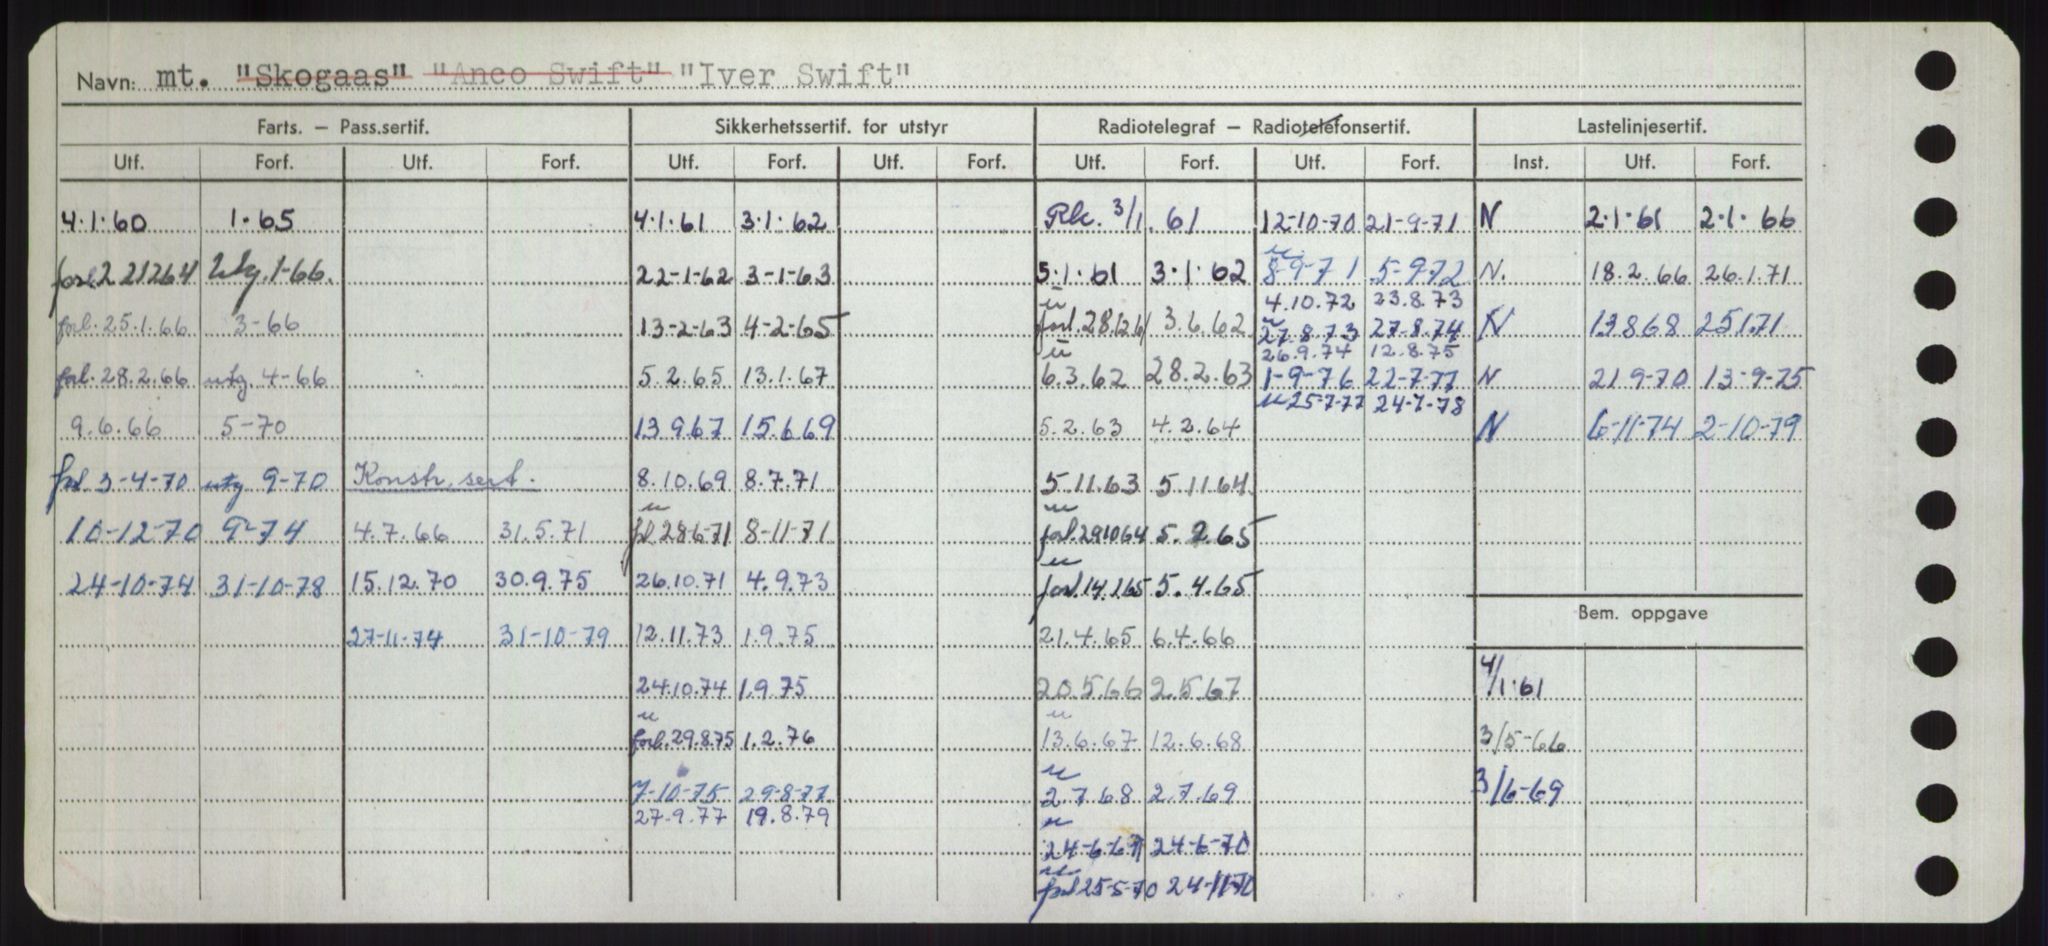 Navn: mt. "Skogaas" "Anco Swift" "Iver Swift"
Farts. – Pass.sertif. Sikkerhetssertif. for utstyr Radiotelegraf – Radiotelefonsertif. Lastelinjesertif.
Utf. Forf. Utf. Forf. Utf. Forf. Utf. Forf. Utf. Forf. Utf. Forf. Inst. Utf. Forf.
4.1.60 1.65 4.1.61 3.1.62 Rk. 3/1. 61 12-10-70 21-9-71 N 2.1.61 2.1.66
forl. 2 21264 utg. 1-66. 22-1-62 3-1-63 5.1.61 3.1.62 u 8-9-71 5-9-72 N. 18.2.66 26.1.71
4.10.72 23.8.73
forl. 25.1.66 3-66 13-2-63 4-2-65 u forl. 28.12.61 3.6.62 u 27.8.73 27.8.74 N 13868 25171
26.9.74 12.8.75
forl. 28.2.66 utg. 4-66 5.2.65 13.1.67 u 6.3.62 28.2.63 1-9-76 22-7-77 N 21 9-70 13-9-75
u 25-7-77 24-7-78
9.6.66 5-70 13 9.67 15.6.69 5.2.63 4.2.64 N 6-11-74 2-10-79
forl. 3-4-70 utg 9-70 Konstr. sert. 8.10.69 8.7.71 5.11.63 5.11.64
10-12-70 9-74 4.7.66 31.5.71 u fl. 28-6-71 8-11-71 u forl. 291064 5.2.65
24-10-74 31-10-78 15.12.70 30.9.75 26.10.71 4.9.73 u forl. 14.1.65 5.4.65
27-11-74 31-10-79 12.11.73 1.9.75 21.4.65 6.4.66
Bem. oppgave
24.10.74 1.9.75 20.5.66 2.5.67 4/1.61
u forl. 29.8.75 1.2.76 u 13.6.67 12.6.68 3/5-66
7-10-75 29-8-77 u 2.7.68 2.7.69 3/6-69
27.9.77 19.8.79
u 24-6-69 24-6-70
u forl 25-5-70 24-11-70